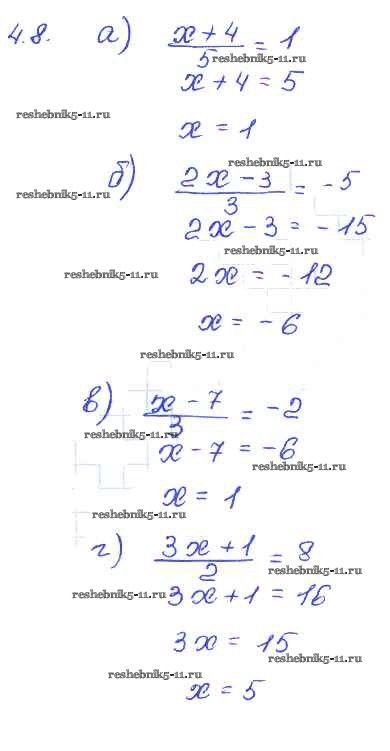 4.8. а) x + 4 / 5 = 1
reshebnik5-11.ru
x + 4 = 5
reshebnik5-11.ru
x = 1
reshebnik5-11.ru
б) 2x - 3 / 3 = -5
reshebnik5-11.ru
2x - 3 = -15
reshebnik5-11.ru
reshebnik5-11.ru
2x = -12
x = -6
reshebnik5-11.ru
в) x - 7 / 3 = -2
reshebnik5-11.ru
x - 7 = -6
reshebnik5-11.ru
x = 1
reshebnik5-11.ru
г) 3x + 1 / 2 = 8
reshebnik5-11.ru
reshebnik5-11.ru
3x + 1 = 16
3x = 15
reshebnik5-11.ru
reshebnik5-11.ru
x = 5